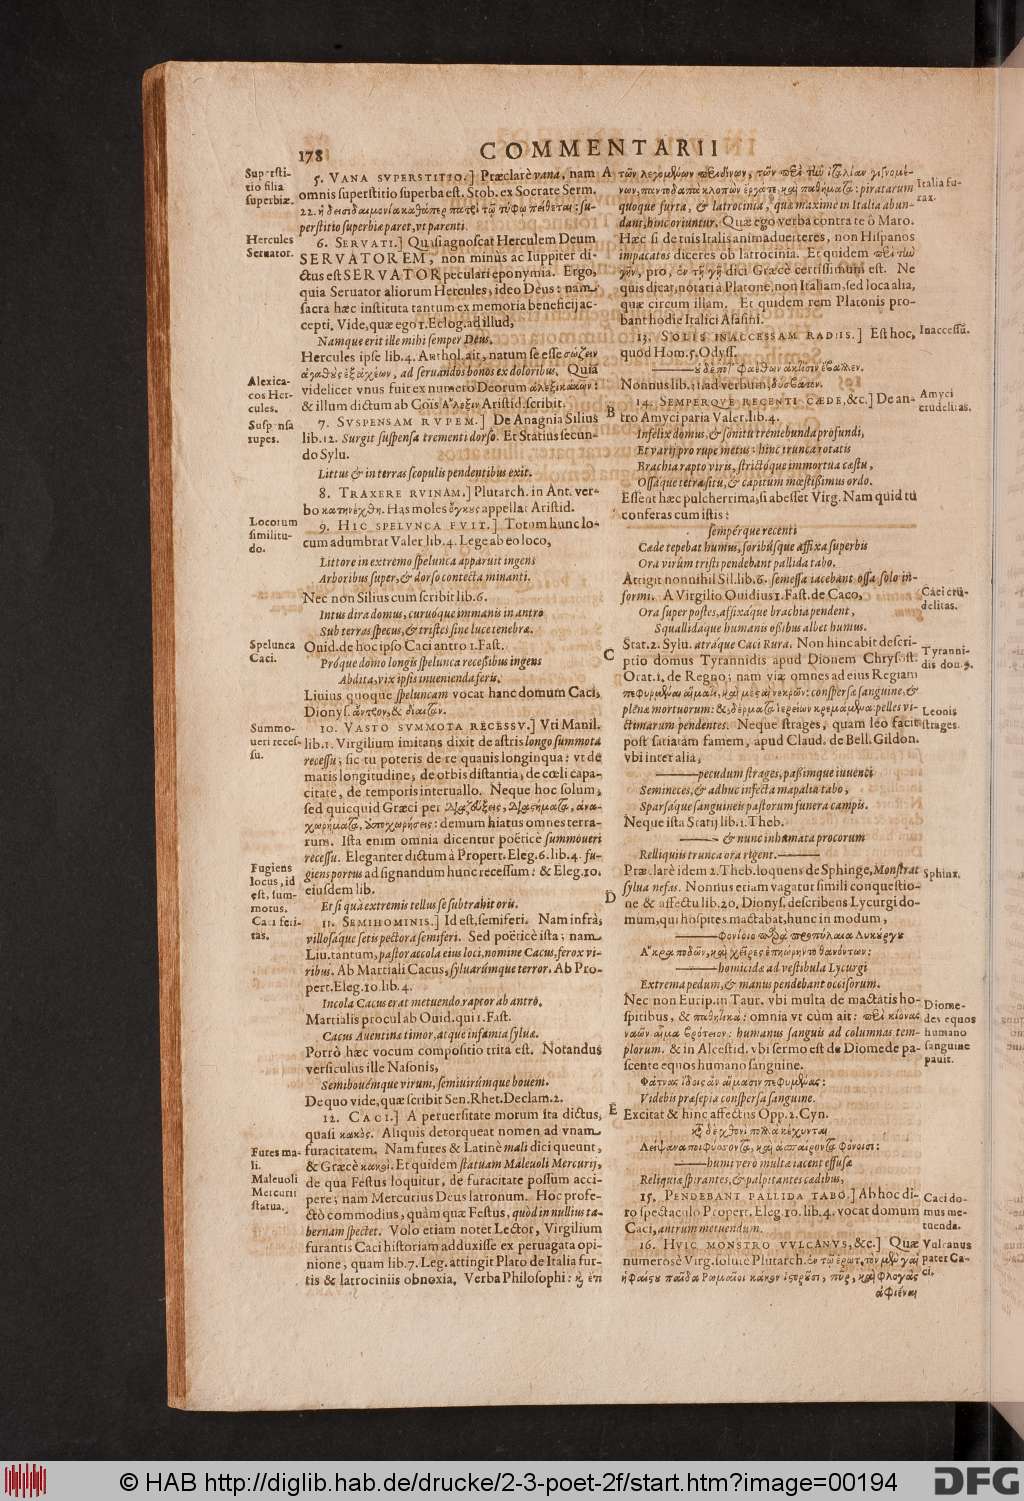 178
COMMENTARII
Supersti-
tio filia
superbiæ.
Hercules
Seruator.
Alexica-
cos Her-
cules.
Suspensa
rupes.
Locorum
similitu-
do.
Spelunca
Caci.
Summo-
ueri reces-
su.
Fugiens
locus, id
est, sum-
motus.
Caci feri-
tas.
Fures ma-
li.
Maleuoli
Mercurii
statua.
5. VANA SVPERSTITIO.] Præclarè vana, nam
omnis superstitio superba est. Stob. ex Socrate Serm.
22. ἡ δεισιδαιμονία καθάπερ πατρὶ τῷ τύφῳ πείθεται: su-
perstitio superbiæ paret, vt parenti.
6. SERVATI.] Quasi agnoscat Herculem Deum
SERVATOREM, non minùs ac Iuppiter di-
ctus est SERVATOR peculiari eponymia. Ergo,
quia Seruator aliorum Hercules, ideo Deus: nam
sacra hæc instituta tantum ex memoria beneficij ac-
cepti. Vide, quæ ego 1. Eclog. ad illud,
Namque erit ille mihi semper Deus.
Hercules ipse lib. 4. Anthol. ait, natum se esse σώζειν
ἀγαθοὺς ἐξ ἀχέων, ad seruandos bonos ex doloribus. Quia
videlicet vnus fuit ex numero Deorum ἀλεξικάκων:
& illum dictum ab Coïs Ἄλεξιν Aristid. scribit.
7. SVSPENSAM RVPEM.] De Anagnia Silius
lib. 12. Surgit suspensa trementi dorso. Et Statius secun-
do Sylu.
Littus & in terras scopulis pendentibus exit.
8. TRAXERE RVINAM.] Plutarch. in Ant. ver-
bo κατηνέχθη. Has moles ὄγκους appellat Aristid.
9. HIC SPELVNCA FVIT.] Totum hunc lo-
cum adumbrat Valer. lib. 4. Lege ab eo loco,
Littore in extremo spelunca apparuit ingens
Arboribus super, & dorso contecta minanti.
Nec non Silius cum scribit lib. 6.
Intus dira domus, curuóque immanis in antro
Sub terras specus, & tristes sine luce tenebræ.
Ouid. de hoc ipso Caci antro 1. Fast.
Próque domo longis spelunca recessibus ingens
Abdita, vix ipsis inuenienda feris.
Liuius quoque speluncam vocat hanc domum Caci,
Dionys. ἄντρον, & δίαιταν.
10. VASTO SVMMOTA RECESSV.] Vti Manil.
lib. 1. Virgilium imitans dixit de astris longo summota
recessu; sic tu poteris de re quauis longinqua: vt de
maris longitudine, de orbis distantia, de cœli capa-
citate, de temporis interuallo. Neque hoc solum,
sed quicquid Græci per διαζεύξεις, διαστήματα, ἀνα-
χωρήματα, ὑποχωρήσεις: demum hiatus omnes terra-
rum. Ista enim omnia dicentur poëticè summoueri
recessu. Eleganter dictum à Propert. Eleg. 6. lib. 4. fu-
giens portus ad signandum hunc recessum: & Eleg. 10.
eiusdem lib.
Et si quà extremis tellus se subtrahit oris.
11. SEMIHOMINIS.] Id est, semiferi. Nam infrà,
villosáque setis pectora semiferi. Sed poëticè ista; nam
Liu. tantum, pastor accola eius loci, nomine Cacus, ferox vi-
ribus. Ab Martiali Cacus, syluarúmque terror. Ab Pro-
pert. Eleg. 10. lib. 4.
Incola Cacus erat metuendo raptor ab antro.
Martialis procul ab Ouid. qui 1. Fast.
Cacus Auentinæ timor, atque infamia syluæ.
Porrò hæc vocum compositio trita est. Notandus
versiculus ille Nasonis,
Semibouémque virum, semiuirúmque bouem.
De quo vide, quæ scribit Sen. Rhet. Declam. 2.
12. CACI.] A peruersitate morum ita dictus,
quasi κακός. Aliquis detorqueat nomen ad vnam
furacitatem. Nam fures & Latinè mali dici queunt,
& Græcè κακοί. Et quidem statuam Maleuoli Mercurij,
de qua Festus loquitur, de furacitate possum acci-
pere; nam Mercurius Deus latronum. Hoc profe-
ctò commodius, quàm quæ Festus, quòd in nullius ta-
bernam spectet. Volo etiam notet Lector, Virgilium
furantis Caci historiam adduxisse ex peruagata opi-
nione, quam lib. 7. Leg. attingit Plato de Italia fur-
tis & latrociniis obnoxia. Verba Philosophi: καὶ ἐπὶ
A
B
C
D
E
τῶν λεγομένων πειδίνων, τῶν περὶ τὴν ἰταλίαν γιγνομέ-
νων, παντοδαπὰ κλοπῶν ἔργατε, καὶ παθήματα: piratarum
quoque furta, & latrocinia, quæ maximè in Italia abun-
dant, hinc oriuntur. Quæ ego verba contra te ô Maro.
Hæc si de tuis Italis animaduerteres, non Hispanos
impacatos diceres ob latrocinia. Et quidem περὶ τὴν
γῆν, pro, ἐν τῇ γῇ dici Græcè certissimum est. Ne
quis dicat, notari à Platone, non Italiam, sed loca alia,
quæ circum illam. Et quidem rem Platonis pro-
bant hodie Italici Asasini.
13. SOLIS INACCESSAM RADIIS.] Est hoc,
quod Hom. 5. Odyss.
——οὐδέ ποτ' Φαέθων ἀκτῖσιν ἔβαλλεν.
Nonnus lib. 11. ad verbum, δύσβατον.
14. SEMPERQVE RECENTI CÆDE, &c.] De an-
tro Amyci paria Valer. lib. 4.
Infelix domus, & sonitu tremebunda profundi,
Et varij pro rupe metus: hinc trunca rotatis
Brachia rapto viris, strictóque immortua cæstu,
Ossáque tetra situ, & capitum mœstissimus ordo.
Essent hæc pulcherrima, si abesset Virg. Nam quid tu
conferas cum istis:
sempérque recenti
Cæde tepebat humus, foribúsque affixa superbis
Ora virûm tristi pendebant pallida tabo.
Attigit nonnihil Sil. lib. 6. semessa iacebant ossa solo in-
formi. A Virgilio Ouidius 1. Fast. de Caco,
Ora super postes, affixáque brachia pendent,
Squallidáque humanis oßibus albet humus.
Stat. 2. Sylu. atráque Caci Rura. Non hinc abit descri-
ptio domus Tyrannidis apud Dionem Chrysost.
Orat. 1. de Regno; nam viæ omnes ad eius Regiam
πεφυρμέναι αἵματι, καὶ μεσταὶ νεκρῶν: conspersæ sanguine, &
plenæ mortuorum: &, δέρματα ἱερείων κρεμάμενα: pelles vi-
ctimarum pendentes. Neque strages, quam leo facit
post satiatam famem, apud Claud. de Bell. Gildon.
vbi inter alia,
——pecudum strages, paßimque iuuenci
Semineces, & adhuc infecta mapalia tabo,
Sparsáque sanguineis pastorum funera campis.
Neque ista Statij lib. 1. Theb.
——& nunc inhumata procorum
Relliquiis trunca ora rigent.——
Præclarè idem 2. Theb. loquens de Sphinge, Monstrat
sylua nefas. Nonnus etiam vagatur simili conquestio-
ne & affectu lib. 20. Dionys. describens Lycurgi do-
mum, qui hospites mactabat, hunc in modum,
——Φονίοιο παρὰ προπύλαια Λυκούργου
Ἄκρα ποδῶν, καὶ χεῖρες ἐπῃωρηντο θανόντων:
——homicidæ ad vestibula Lycurgi
Extrema pedum, & manus pendebant occisorum.
Nec non Eurip. in Taur. vbi multa de mactatis ho-
spitibus, & παθητικά: omnia vt cùm ait: περὶ κίονας
ναῶν αἷμα βρότειον: humanus sanguis ad columnas tem-
plorum. & in Alcestid. vbi sermo est de Diomede pa-
scente equos humano sanguine.
Φάτνας ἴδοις ἂν αἵμασιν πεφυρμένας:
Videbis præsepia conspersa sanguine.
Excitat & hinc affectus Opp. 2. Cyn.
καὶ δὲ χθονὶ πολλὰ κέχυνται
Λείψανα ποιφύσσοντα, καὶ ἀσπαίροντα Φόνοισι:
——humi verò multæ iacent effusæ
Reliquiæ spirantes, & palpitantes cædibus,
15. PENDEBANT PALLIDA TABO.] Ab hoc di-
ro spectaculo Propert. Eleg. 10. lib. 4. vocat domum
Caci, antrum metuendum.
16. HVIC MONSTRO VVLCANVS, &c.] Quæ
numerosè Virg. soluté Plutarch. ἐν τῷ ἐρωτ. τὸν μὲν γὰρ
ἡφαίστου παῖδα Ρωμαῖοι κᾶκον ἱστοροῦσι, πῦρ, καὶ Φλογὰς
ἀφιέναι
Italia fu-
rax.
Inaccessũ.
Amyci
crudelitas.
Caci cru-
delitas.
Tyranni-
dis domus.
Leonis
strages.
Sphinx.
Diome-
des equos
humano
sanguine
pauit.
Caci do-
mus me-
tuenda.
Vulcanus
pater Ca-
ci.
© HAB http://diglib.hab.de/drucke/2-3-poet-2f/start.htm?image=00194
DFG